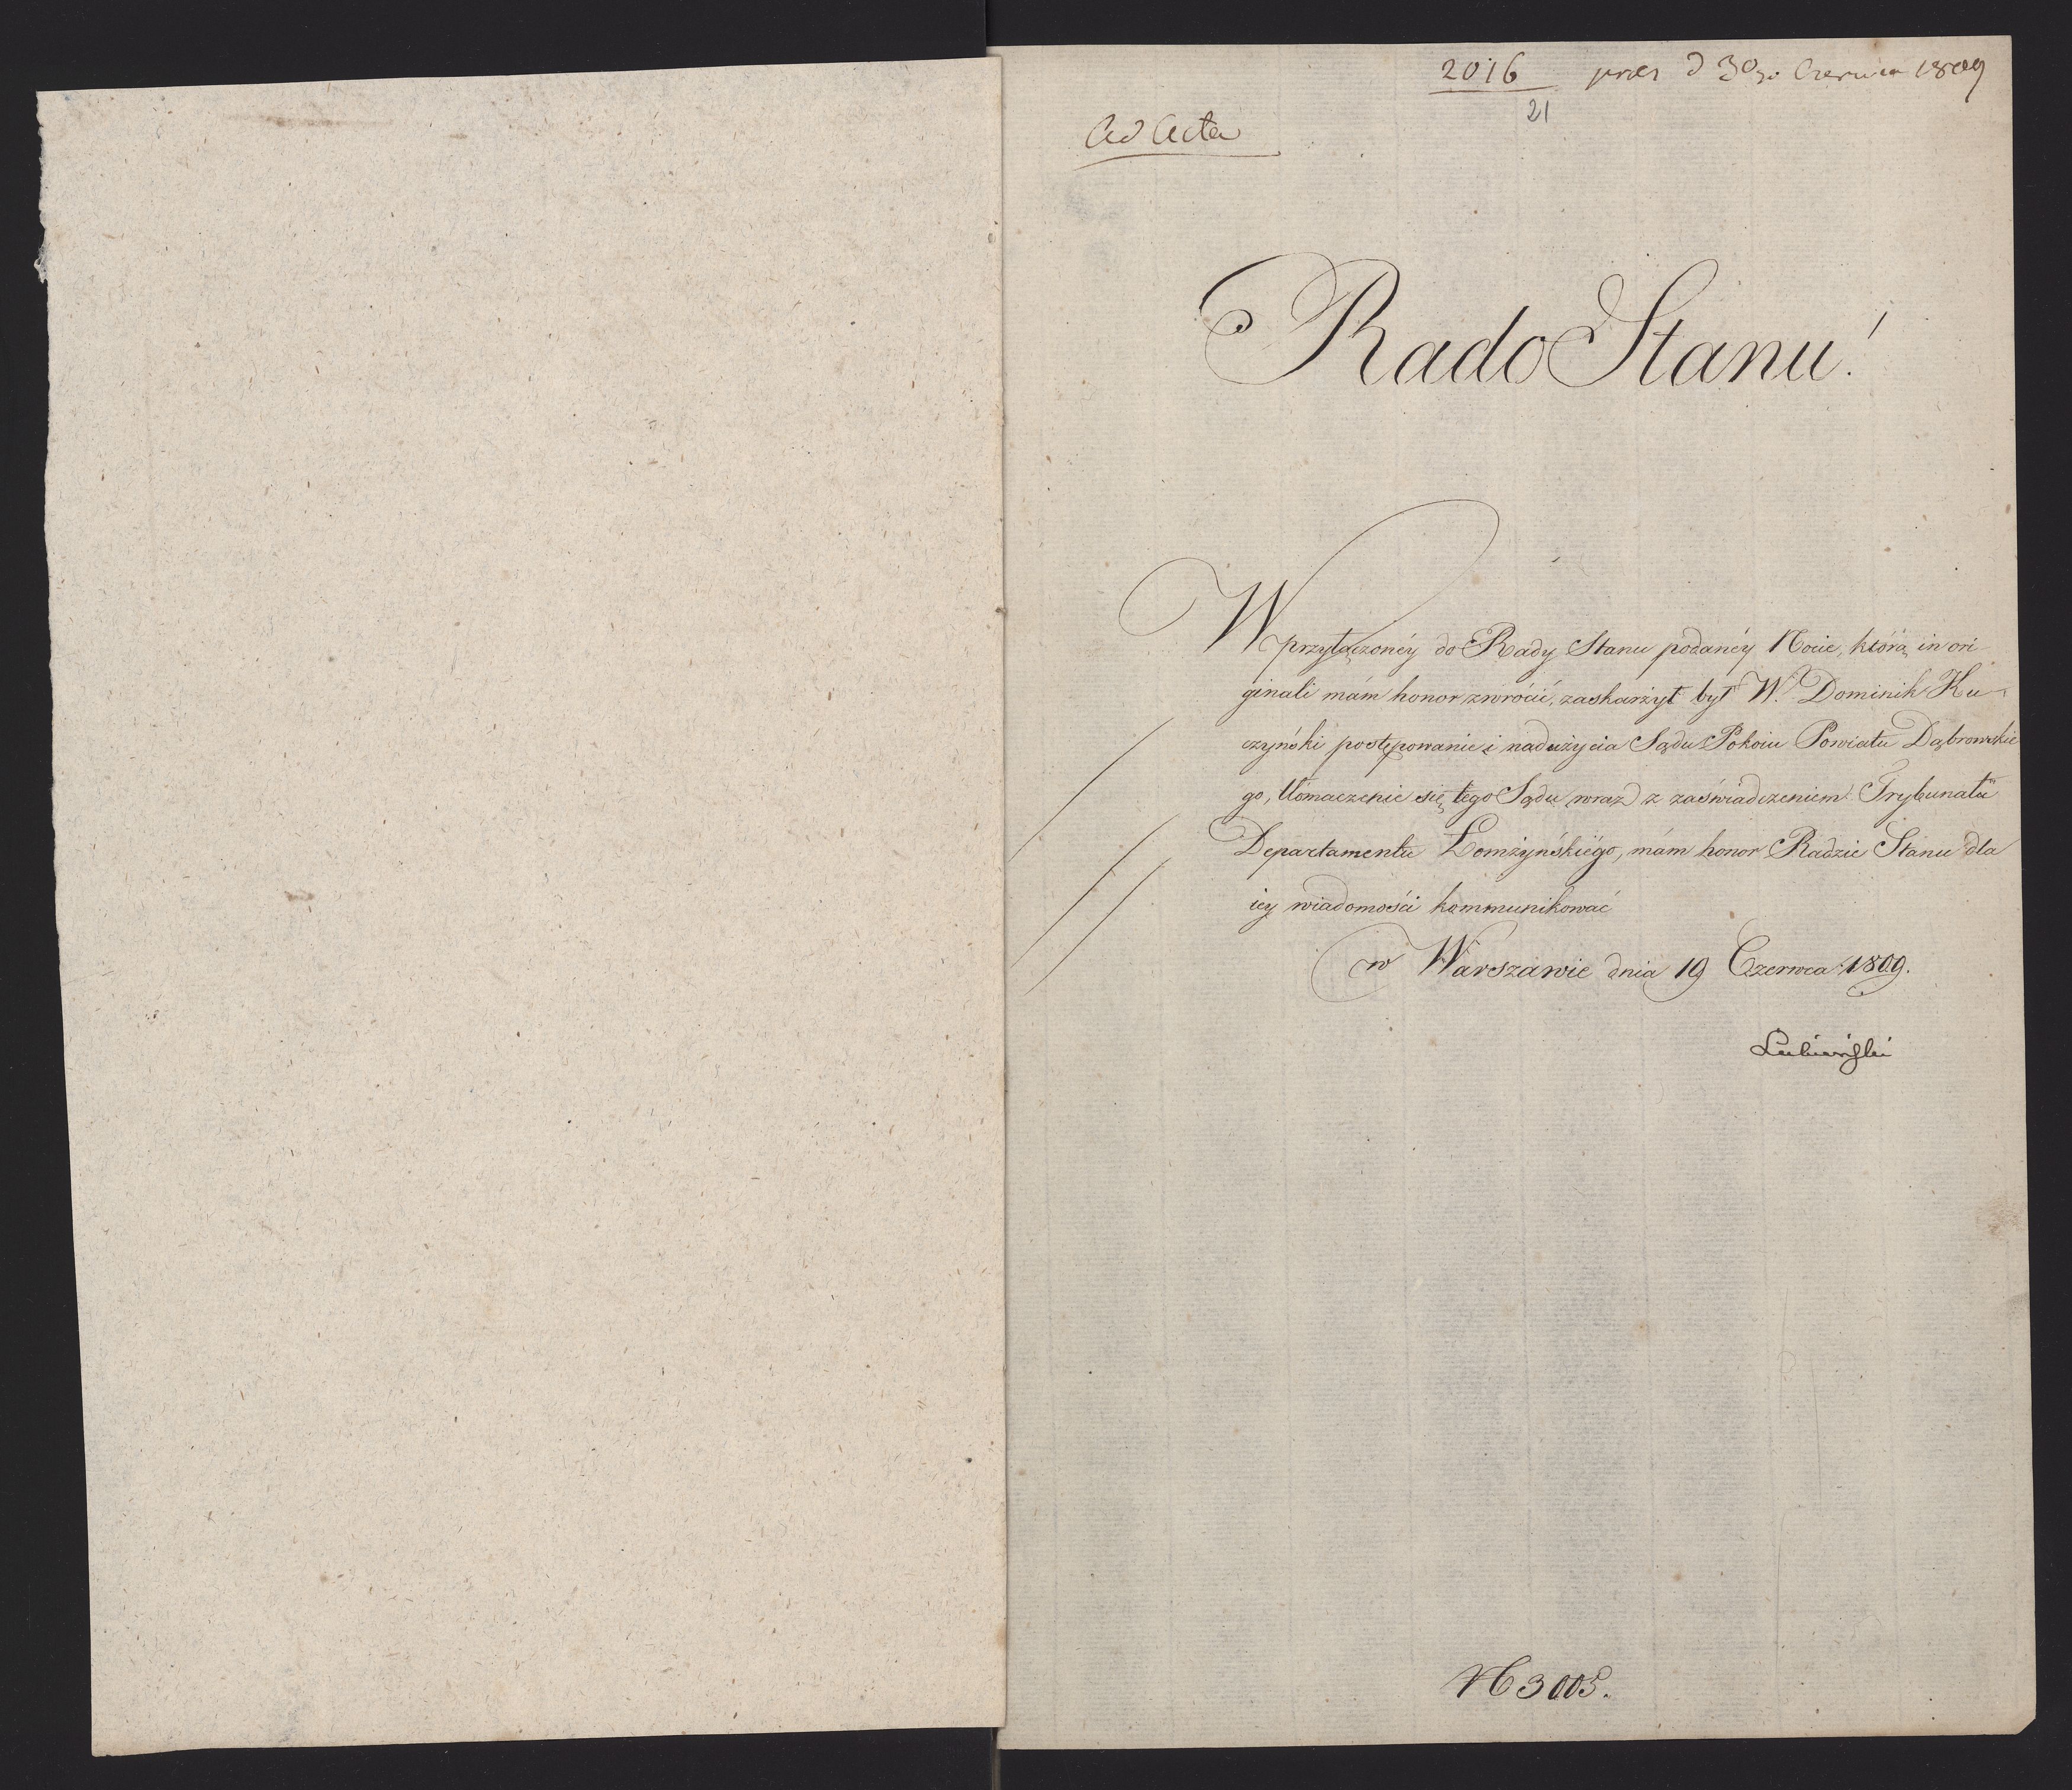 2016 präs d 30go Czerwca 1809
21
Ad Acta
Rado Stanu!
W przyłączonéy do Rady Stanu podanéy Nocie, którą in ori
ginali mám honor zwrócić, zaskarżył był W. Dominik Ku-
czyński postępowanie i nadużycia Sądu Pokoiu Powiatu Dąbrowskie
go, tłómaczenie się tego Sądu wraz z zaświadczeniem Trybunału
Departamentu Łomżyńskiégo, mám honor Radzie Stanu dla
iey wiadomości kommunikować
w Warszawie dnia 19 Czerwca 1809.
Łubieński
N 3005.